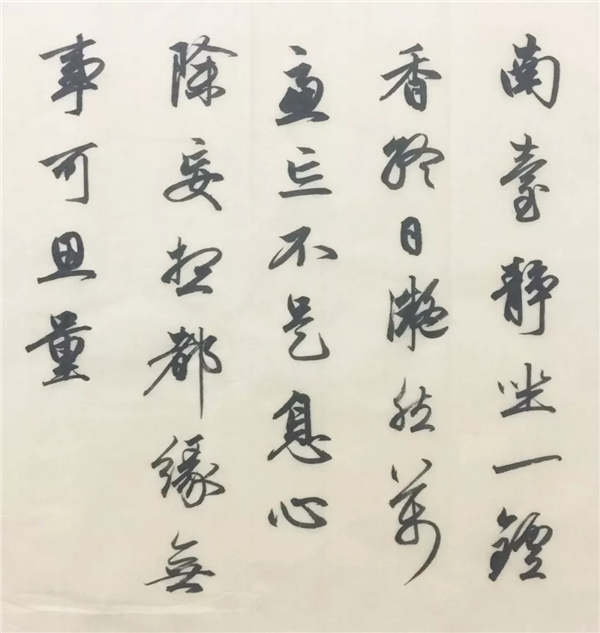 南臺靜坐一鑪
香終日凝然萬
慮亡不是息心
除妄想都緣無
事可思量